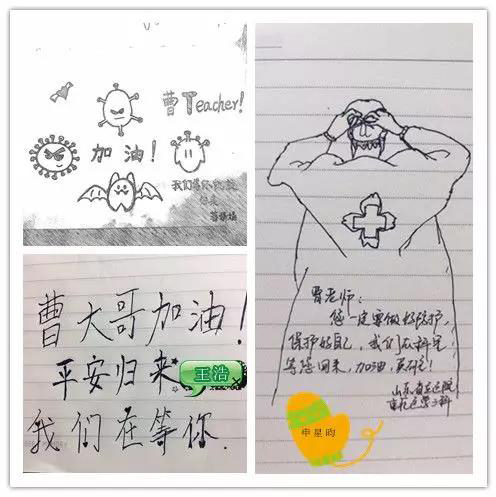 曹Teacher!
加油!
我们等你凯旋
曹大哥加油!
平安归来
王浩
我们在等你.
曹老师:
您一定要做好防护,
保护好自己, 我们在科室
等您回来, 加油, 英雄!
山东省立医院
重症医学二科
申星昀